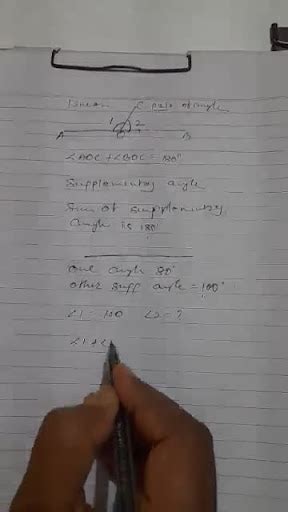 C pair of angle
1 2
A O B
∠AOC + ∠BOC = 180°
Supplementry angle
Sum of supplementry
angle is 180°
one angle 80°
other supp angle = 100°
∠1 = 100 ∠2 = ?
∠1 + ∠